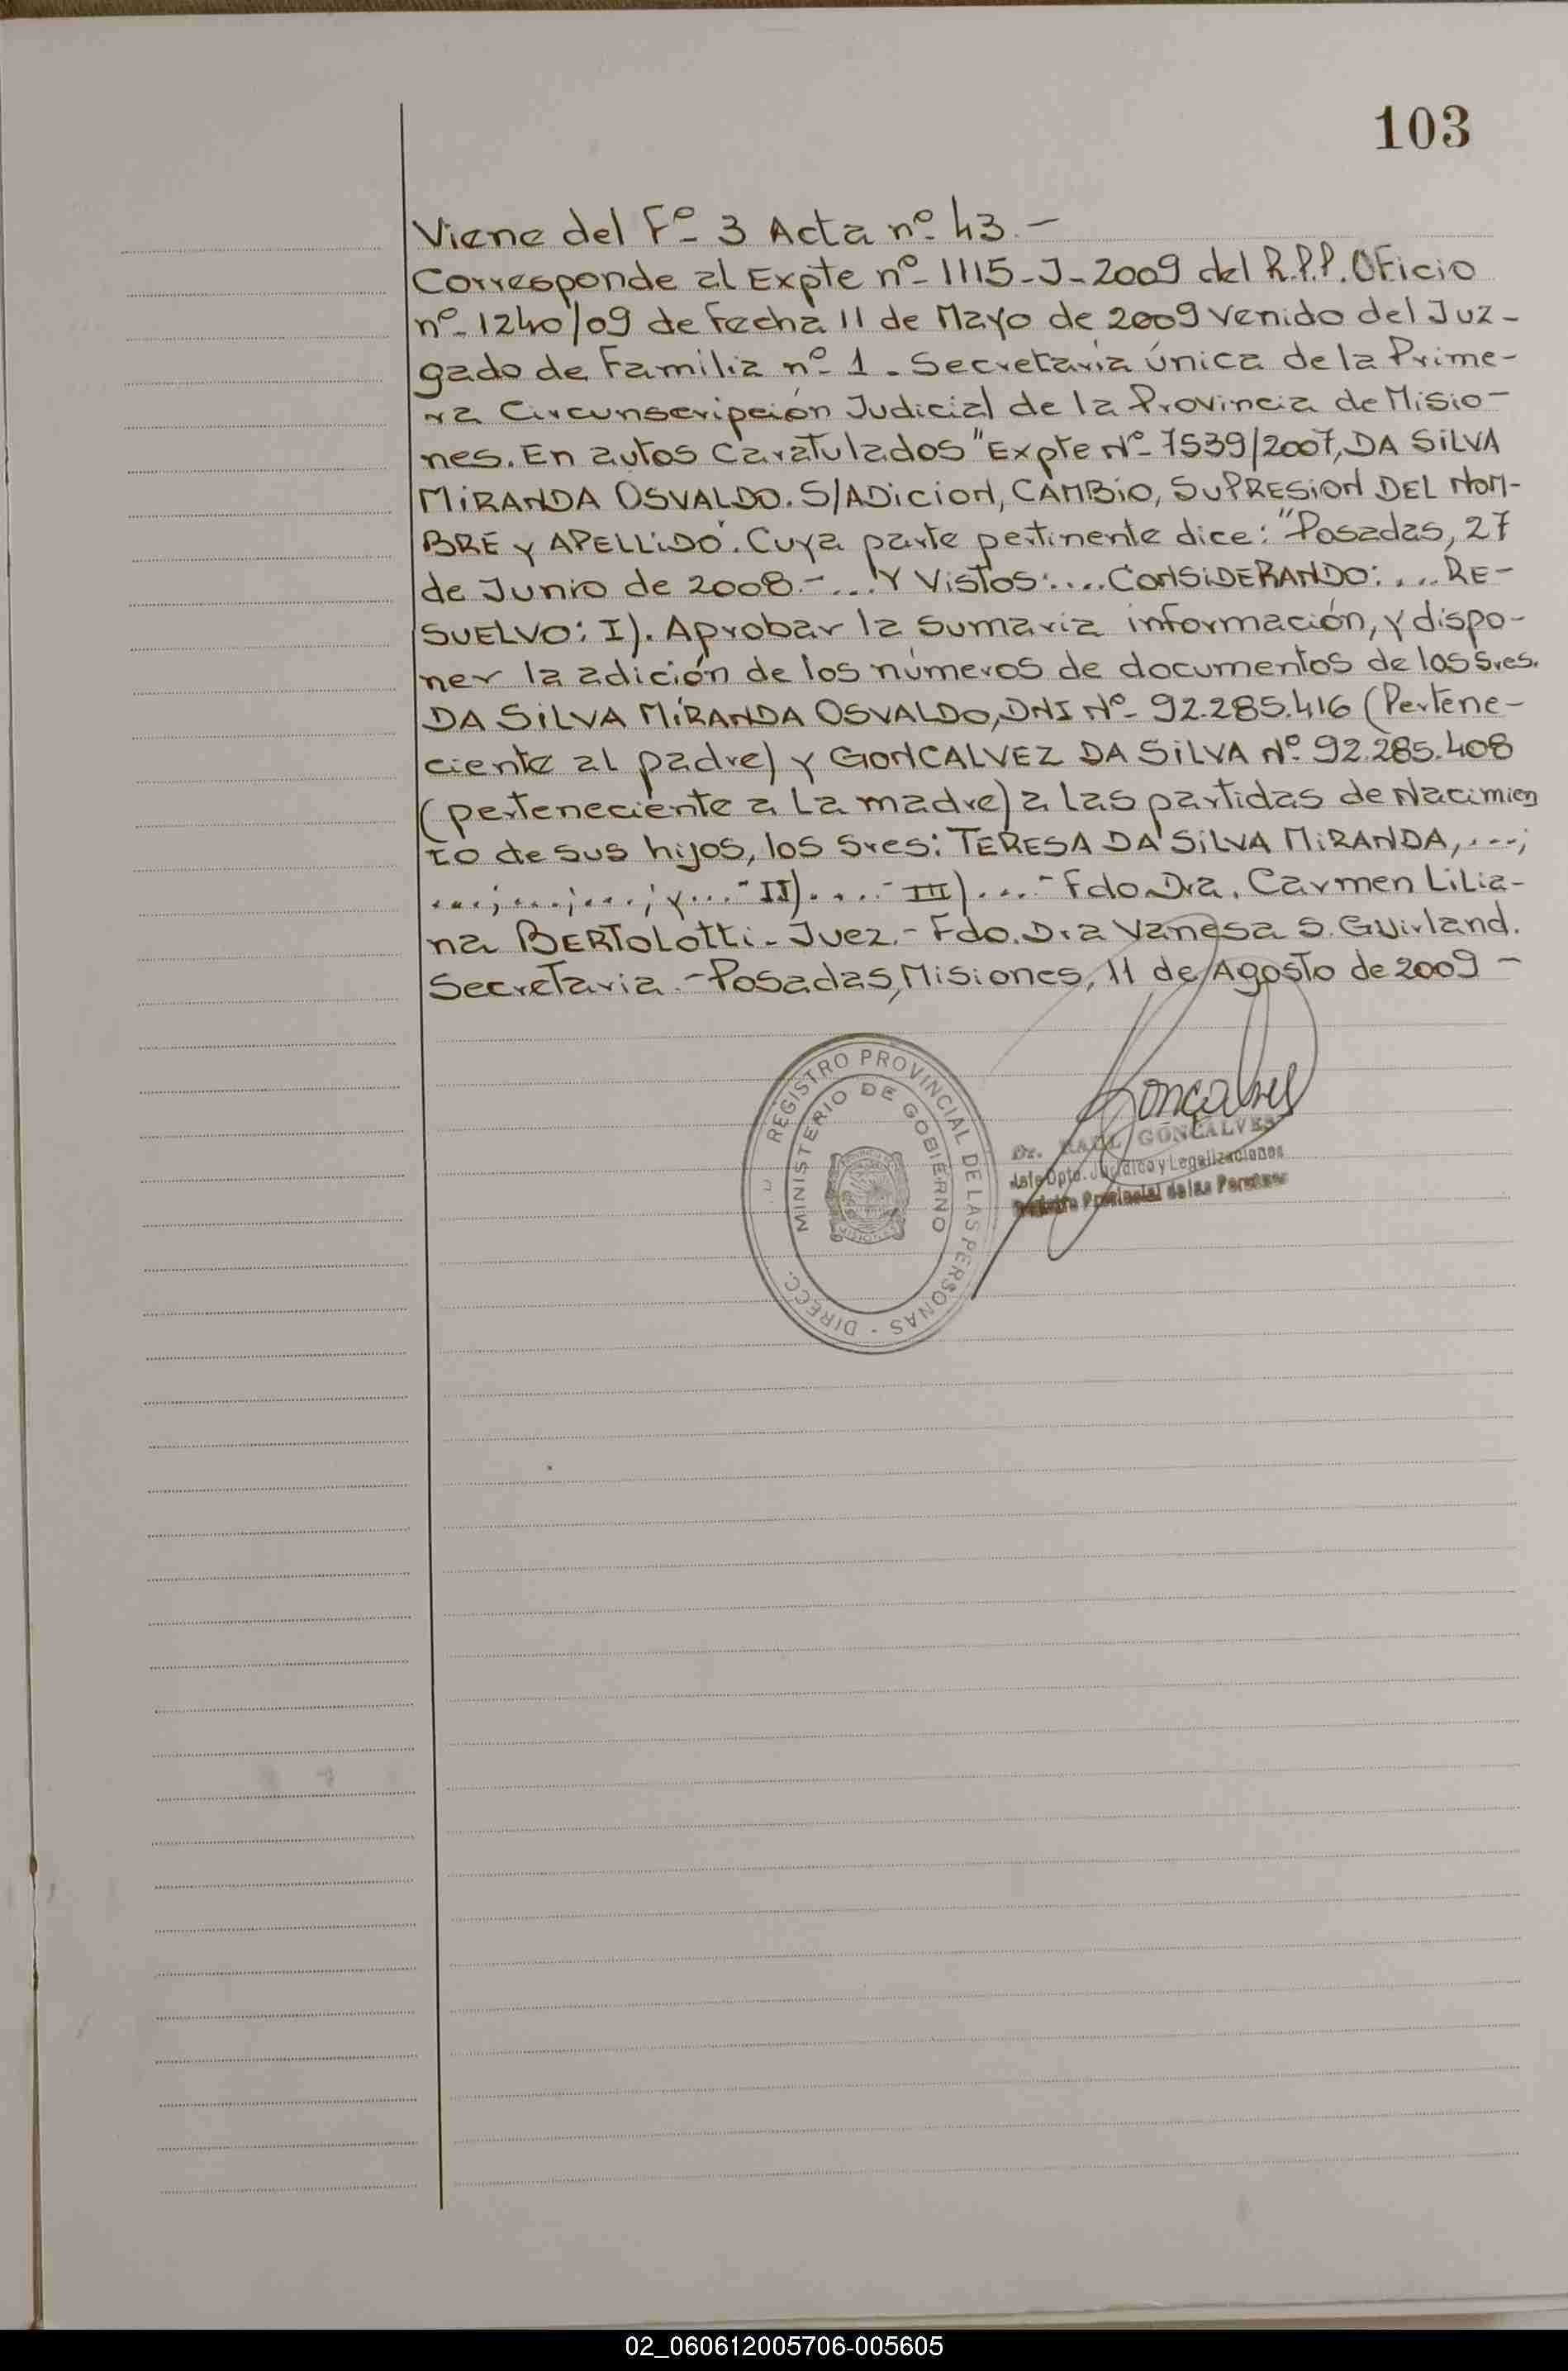 103
Viene del Fº- 3 Acta nº- 43.-
Corresponde al Expte nº- 1115-J-2009 del R.P.P. Oficio
nº- 1240/09 de fecha 11 de Mayo de 2009 venido del Juz-
gado de Familia nº- 1. Secretaría Única de la Prime-
ra Circunscripción Judicial de la Provincia de Misio-
nes. En autos caratulados "Expte Nº- 7539/2007, DA SILVA
MIRANDA OSVALDO. S/ADICION, CAMBIO, SUPRESION DEL NOM-
BRE y APELLIDO". Cuya parte pertinente dice: "Posadas, 27
de Junio de 2008.- ... Y Vistos:.... CONSIDERANDO: .... RE-
SUELVO: I). Aprobar la sumaria información, y dispo-
ner la adición de los números de documentos de los Sres.
DA SILVA MIRANDA OSVALDO, DNI Nº- 92.285.416 (Pertene-
ciente al padre) y GONCALVEZ DA SILVA Nº 92.285.408
(perteneciente a la madre) a las partidas de Nacimien
to de sus hijos, los Sres: TERESA DA SILVA MIRANDA, ...;
...;...;...; y...- II)....- III)....- Fdo Dra. Carmen Lilia-
na BERTOLOTTI- Juez.- Fdo. Dra Vanesa S. Guirland.
Secretaria.- Posadas, Misiones, 11 de Agosto de 2009 -
REGISTRO PROVINCIAL DE LAS PERSONAS - DIRECC.
MINISTERIO DE GOBIERNO
MISIONES
Gonçalves
Dr. RAUL GONCALVES
Jefe Dpto. Jurídico y Legalizaciones
Registro Provincial de las Personas
02_060612005706-005605